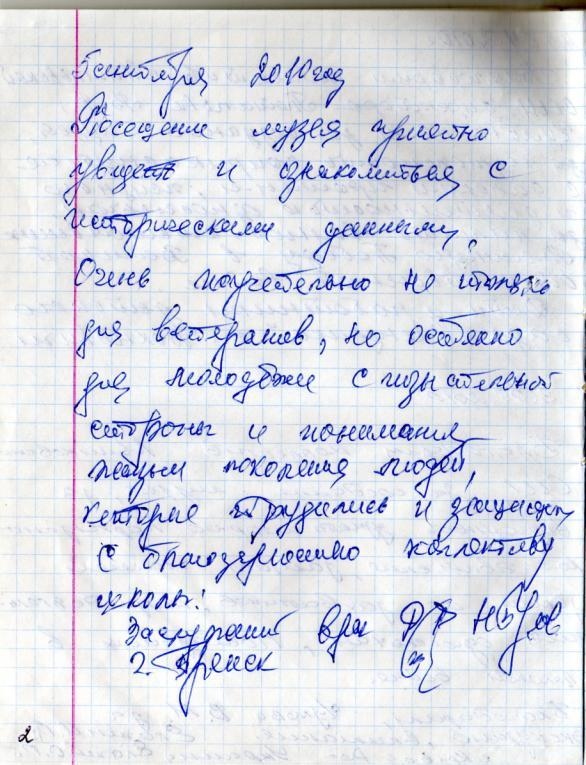 5 сентября 2010 год
Посещение музея приятно
увидеть и ознакомиться с
историческими данными.
Очень поучительно не только
для ветеранов, но особенно
для молодёжи с
стороны и понимания
людей,
которые трудились и
С благодарностью коллективу
школы!
Заслуженный врач РФ
г. Брянск
2